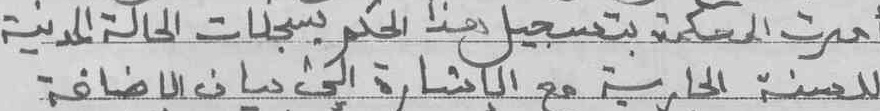 أمرت المحكمة بتسجيل هذا الحكم بسجلات الحالة المدنية
للسنة الجارية مع الاشارة الى بيان الاضافة